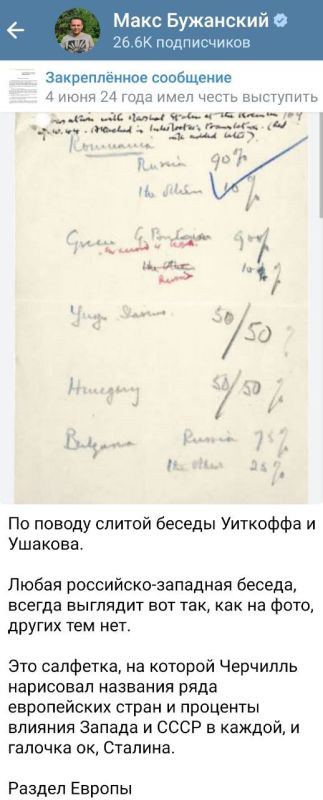 Макс Бужанский
26.6K подписчиков
Закреплённое сообщение
4 июня 24 года имел честь выступить
Roumania
Russia 90%
The others 10%
Greece G. Britain 90%
in accord with USA
Russia 10%
Yugoslavia 50/50 %
Hungary 50/50 %
Bulgaria Russia 75%
The others 25%
По поводу слитой беседы Уиткоффа и
Ушакова.
Любая российско-западная беседа,
всегда выглядит вот так, как на фото,
других тем нет.
Это салфетка, на которой Черчилль
нарисовал названия ряда
европейских стран и проценты
влияния Запада и СССР в каждой, и
галочка ок, Сталина.
Раздел Европы